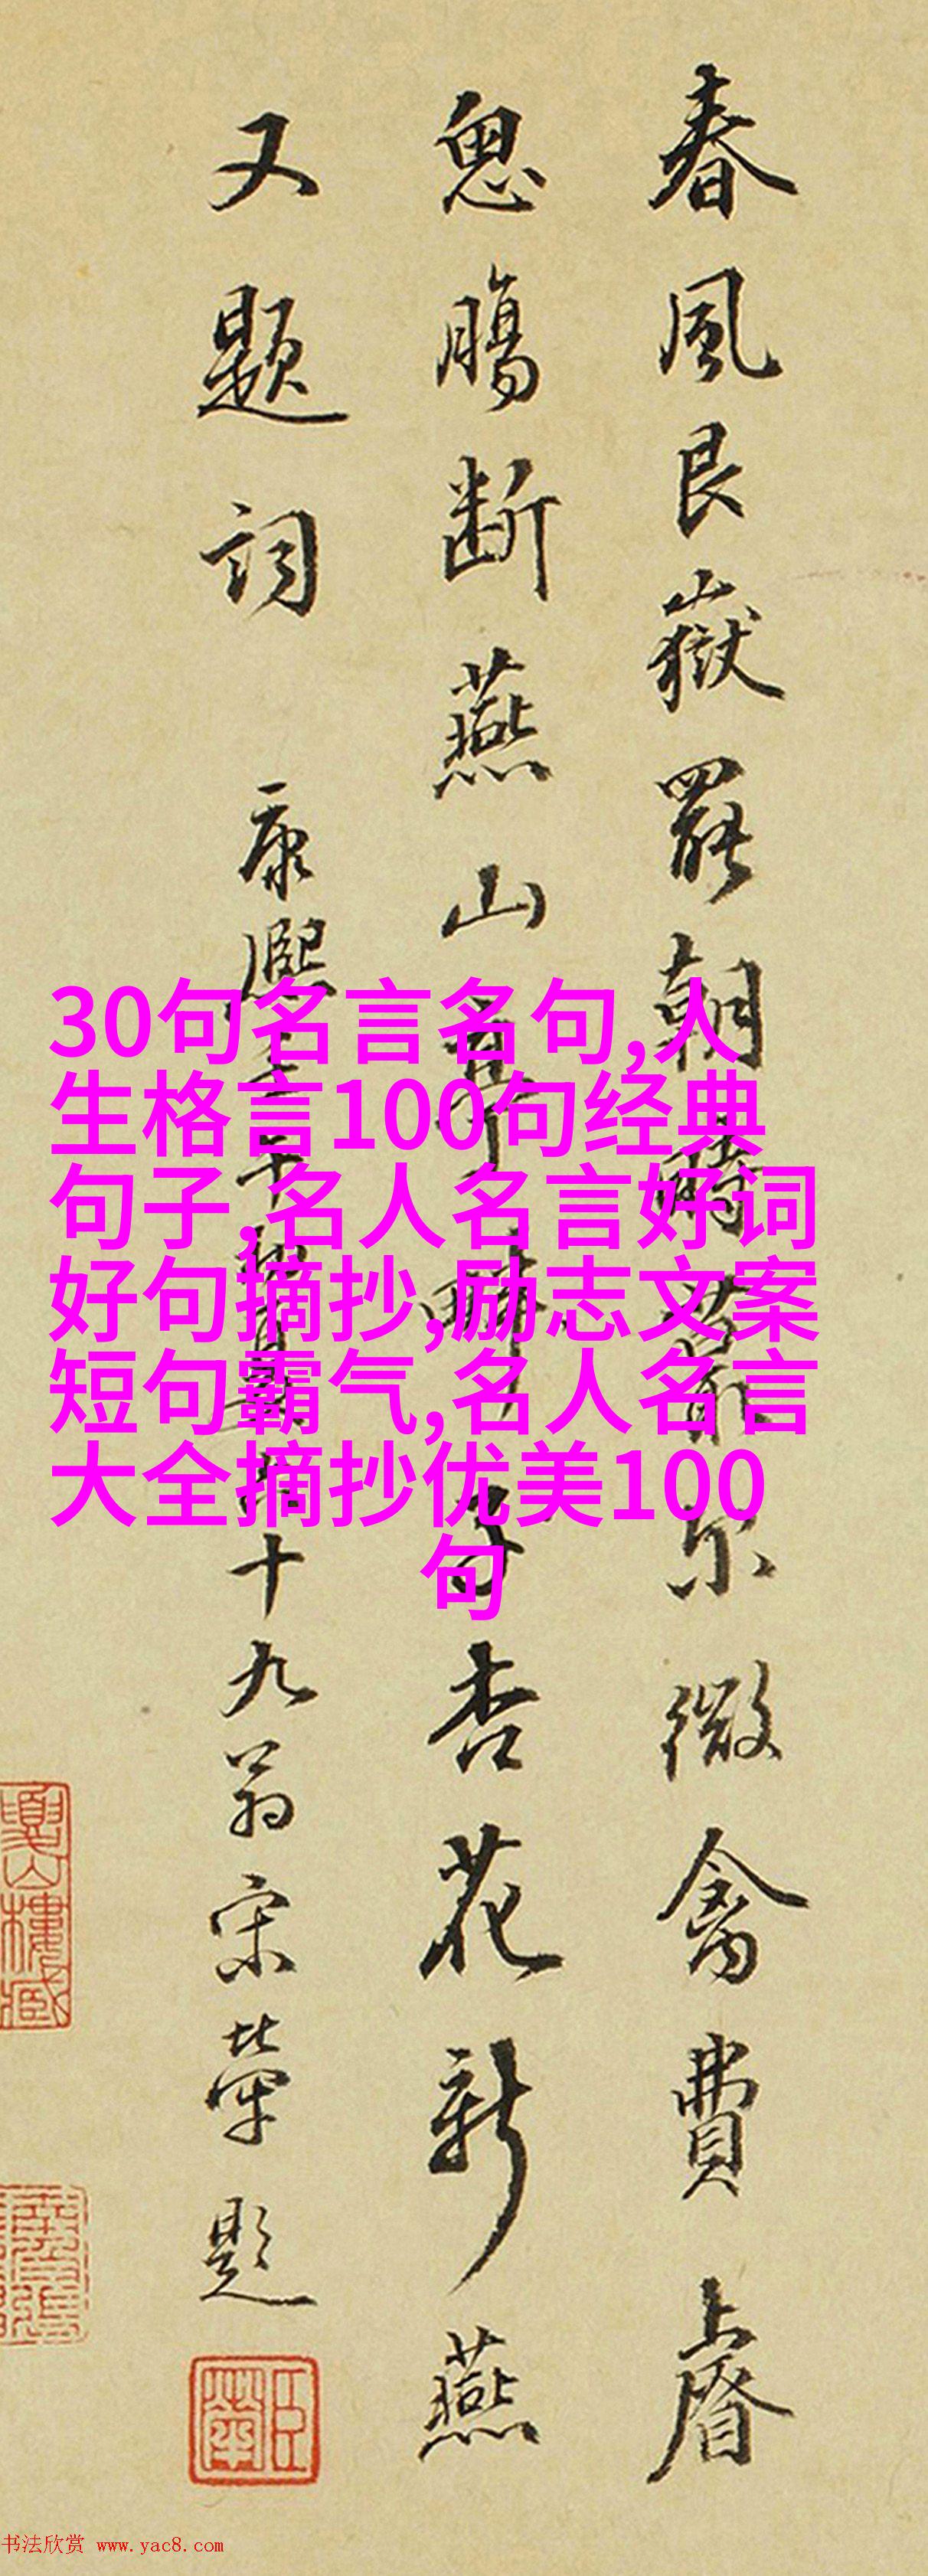 春風艮嶽罷朝時蕞尔微禽費睿
思腸斷燕山 杏花新燕
又題詞 康熙 十九翁宋犖題
30句名言名句,人
生格言100句经典
句子,名人名言好词
好句摘抄,励志文案
短句霸气,名人名言
大全摘抄优美100
句
书法欣赏 www.yac8.com